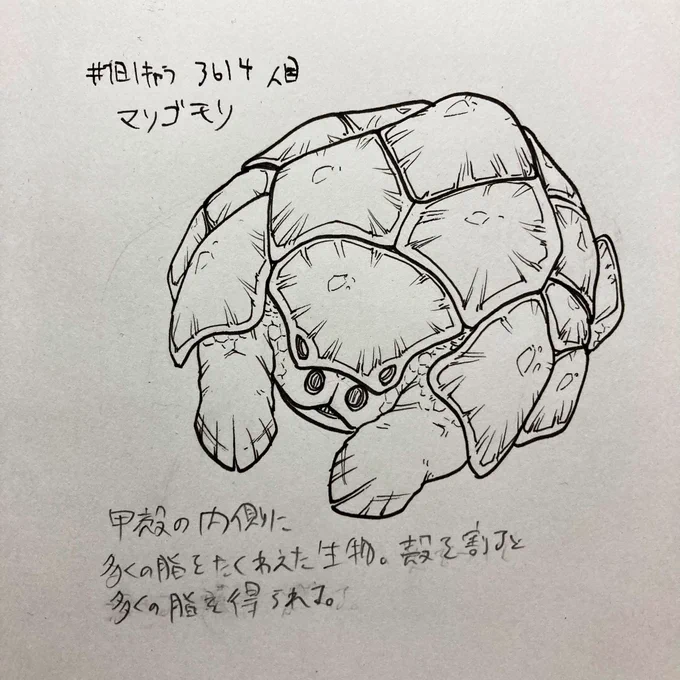 #1日1キャラ 3614人目
マリゴモリ
甲殻の内側に
多くの脂をたくわえた生物。殻を割ると
多くの脂を得られる。